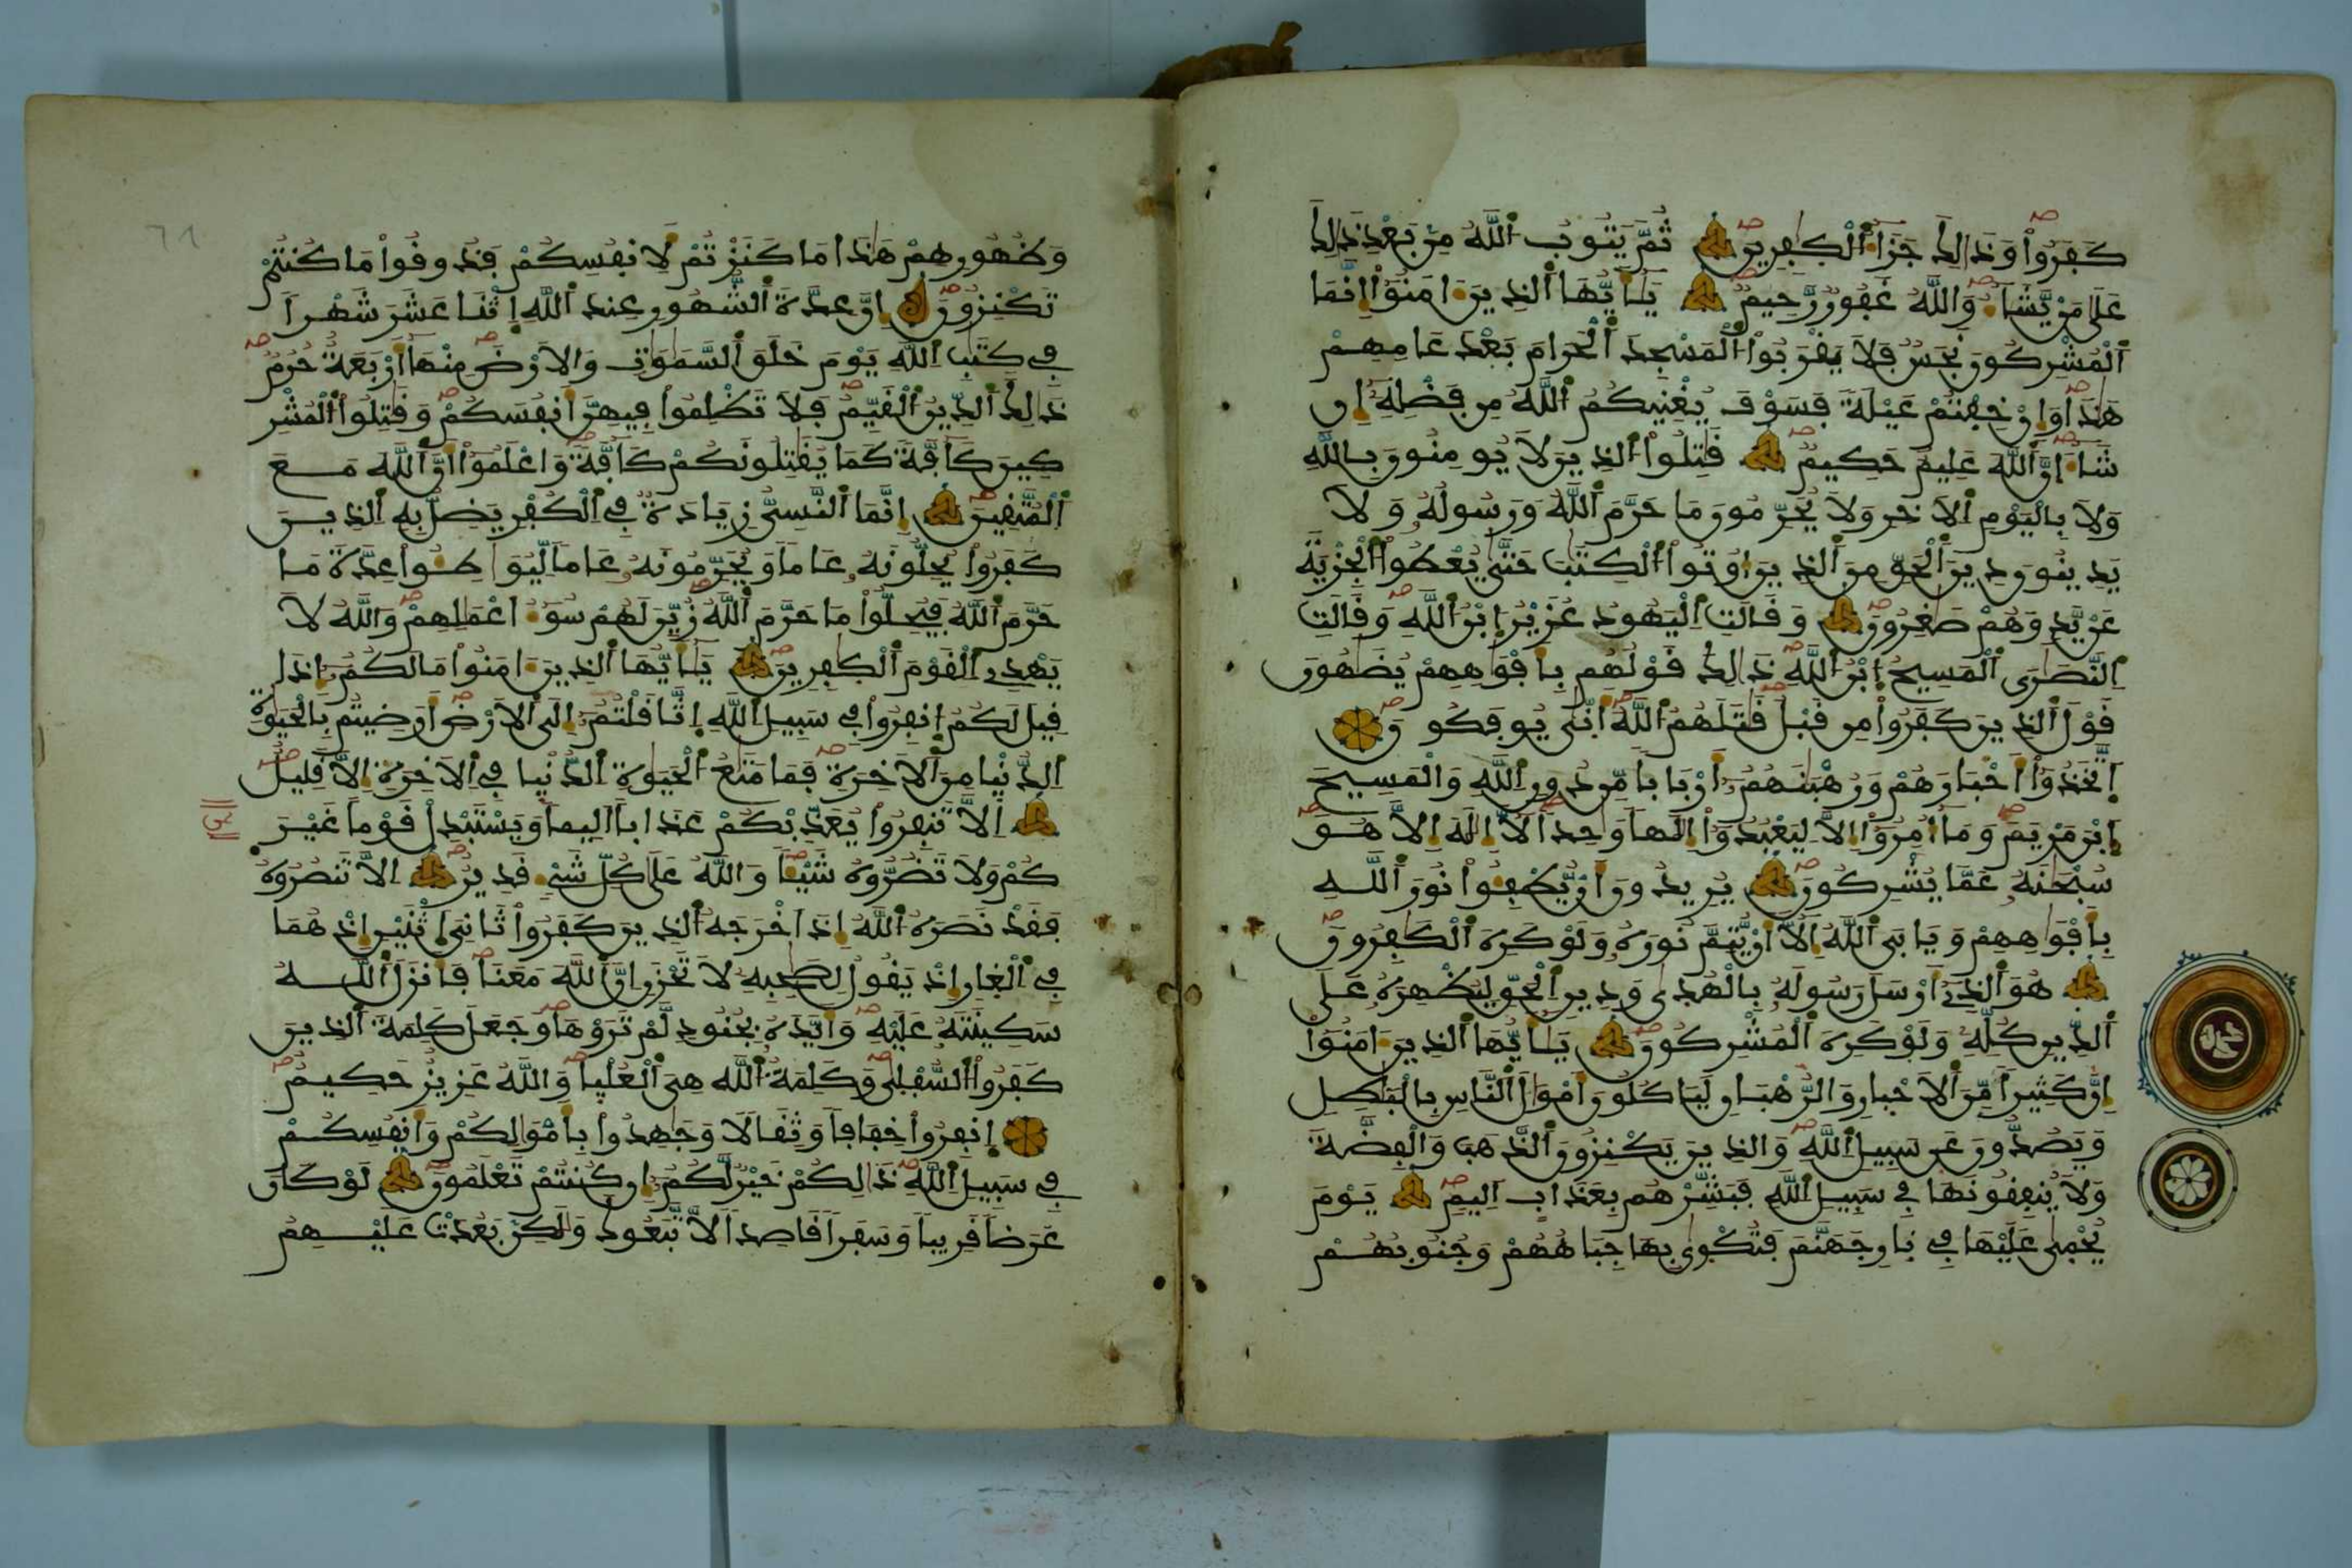 كَفَرُواْ وَذَٰلِكَ جَزَآءُ اُ۬لْكٰفِرِينَ ثُمَّ يَتُوبُ اُ۬للَّهُ مِنۢ بَعْدِ ذَٰلِكَ
عَلَىٰ مَنْ يَّشَآءُ وَاللَّهُ غَفُورٌ رَّحِيمٌ يَٰٓأَيُّهَا اَ۬لذِينَ ءَامَنُوٓاْ إِنَّمَا
اَ۬لْمُشْرِكُونَ نَجَسٌ فَلَا يَقْرَبُواْ اُ۬لْمَسْجِدَ اَ۬لْحَرَامَ بَعْدَ عَامِهِمْ
هَٰذَا وَإِنْ خِفْتُمْ عَيْلَةً فَسَوْفَ يُغْنِيكُمُ اُ۬للَّهُ مِن فَضْلِهِۦٓ إِن
شَآءَ اِ۪نَّ اَ۬للَّهَ عَلِيمٌ حَكِيمٌ قَٰتِلُواْ اُ۬لذِينَ لَا يُومِنُونَ بِاللَّهِ
وَلَا بِالْيَوْمِ اِ۬لَاخِرِ وَلَا يُحَرِّمُونَ مَا حَرَّمَ اَ۬للَّهُ وَرَسُولُهُۥ وَلَا
يَدِينُونَ دِينَ اَ۬لْحَقِّ مِنَ اَ۬لذِينَ أُوتُواْ اُ۬لْكِتَٰبَ حَتَّىٰ يُعْطُواْ اُ۬لْجِزْيَةَ
عَنْ يَّدٍ وَهُمْ صَٰغِرُونَ وَقَالَتِ اِ۬لْيَهُودُ عُزَيْرُ اُ۪بْنُ اُ۬للَّهِ وَقَالَتِ
اِ۬لنَّصَٰرَى اَ۬لْمَسِيحُ اُ۪بْنُ اُ۬للَّهِ ذَٰلِكَ قَوْلُهُم بِأَفْوَٰهِهِمْ يُضَٰهُونَ
قَوْلَ اَ۬لذِينَ كَفَرُواْ مِن قَبْلُ قَٰتَلَهُمُ اُ۬للَّهُ أَنّٰى يُوفَكُونَ
اَ۪تَّخَذُوٓاْ أَحْبَارَهُمْ وَرُهْبَٰنَهُمُۥٓ أَرْبَابًا مِّن دُونِ اِ۬للَّهِ وَالْمَسِيحَ
اَ۪بْنَ مَرْيَمَ وَمَآ أُمِرُوٓاْ إِلَّا لِيَعْبُدُوٓاْ إِلَٰهًا وَٰحِدًا لَّآ إِلَٰهَ إِلَّا هُوَ
سُبْحَٰنَهُۥ عَمَّا يُشْرِكُونَ يُرِيدُونَ أَنْ يُّطْفِـُٔواْ نُورَ اَ۬للَّهِ
بِأَفْوَٰهِهِمْ وَيَابَى اَ۬للَّهُ إِلَّآ أَنْ يُّتِمَّ نُورَهُۥ وَلَوْ كَرِهَ اَ۬لْكَٰفِرُونَ
هُوَ اَ۬لذِےٓ أَرْسَلَ رَسُولَهُۥ بِالْهُدَىٰ وَدِينِ اِ۬لْحَقِّ لِيُظْهِرَهُۥ عَلَى
اَ۬لدِّينِ كُلِّهِۦ وَلَوْ كَرِهَ اَ۬لْمُشْرِكُونَ يَٰٓأَيُّهَا اَ۬لذِينَ ءَامَنُوٓاْ
إِنَّ كَثِيرًا مِّنَ اَ۬لَاحْبَارِ وَالرُّهْبَانِ لَيَاكُلُونَ أَمْوَٰلَ اَ۬لنَّاسِ بِالْبَٰطِلِ
وَيَصُدُّونَ عَن سَبِيلِ اِ۬للَّهِ وَالذِينَ يَكْنِزُونَ اَ۬لذَّهَبَ وَالْفِضَّةَ
وَلَا يُنفِقُونَهَا فِي سَبِيلِ اِ۬للَّهِ فَبَشِّرْهُم بِعَذَابٍ اَلِيمٍ يَوْمَ
يُحْمَىٰ عَلَيْهَا فِي نَارِ جَهَنَّمَ فَتُكْوَىٰ بِهَا جِبَاهُهُمْ وَجُنُوبُهُمْ
وَظُهُورُهُمْ هَٰذَا مَا كَنَزْتُمْ لِأَنفُسِكُمْ فَذُوقُواْ مَا كُنتُمْ
تَكْنِزُونَ إِنَّ عِدَّةَ اَ۬لشُّهُورِ عِندَ اَ۬للَّهِ اِ۪ثْنَا عَشَرَ شَهْرًا
فِي كِتَٰبِ اِ۬للَّهِ يَوْمَ خَلَقَ اَ۬لسَّمَٰوَٰتِ وَالَارْضَ مِنْهَآ أَرْبَعَةٌ حُرُمٌ
ذَٰلِكَ اَ۬لدِّينُ اُ۬لْقَيِّمُ فَلَا تَظْلِمُواْ فِيهِنَّ أَنفُسَكُمْ وَقَٰتِلُواْ اُ۬لْمُشْرِ
كِينَ كَآفَّةً كَمَا يُقَٰتِلُونَكُمْ كَآفَّةً وَاعْلَمُوٓاْ أَنَّ اَ۬للَّهَ مَعَ
اَ۬لْمُتَّقِينَ إِنَّمَا اَ۬لنَّسِيُّ زِيَادَةٌ فِي اِ۬لْكُفْرِ يَضِلُّ بِهِ اِ۬لذِينَ
كَفَرُواْ يُحِلُّونَهُۥ عَامًا وَيُحَرِّمُونَهُۥ عَامًا لِّيُوَاطِـُٔواْ عِدَّةَ مَا
حَرَّمَ اَ۬للَّهُ فَيُحِلُّواْ مَا حَرَّمَ اَ۬للَّهُ زُيِّنَ لَهُمْ سُوٓءُ اَعْمَٰلِهِمْ وَاللَّهُ لَا
يَهْدِي اِ۬لْقَوْمَ اَ۬لْكٰفِرِينَ يَٰٓأَيُّهَا اَ۬لذِينَ ءَامَنُواْ مَا لَكُمُۥٓ إِذَا
قِيلَ لَكُمُ اُ۪نفِرُواْ فِي سَبِيلِ اِ۬للَّهِ اِ۪ثَّاقَلْتُمُۥٓ إِلَى اَ۬لَارْضِ أَرَضِيتُم بِالْحَيَوٰةِ
اِ۬لدُّنْيَا مِنَ اَ۬لَاخِرَةِ فَمَا مَتَٰعُ اُ۬لْحَيَوٰةِ اِ۬لدُّنْيَا فِي اِ۬لَاخِرَةِ إِلَّا قَلِيلٌ
إِلَّا تَنفِرُواْ يُعَذِّبْكُمْ عَذَابًا اَلِيمًا وَيَسْتَبْدِلْ قَوْمًا غَيْرَ
كُمْ وَلَا تَضُرُّوهُ شَيْـًٔا وَاللَّهُ عَلَىٰ كُلِّ شَيْءٍ قَدِيرٌ اِلَّا تَنصُرُوهُ
فَقَدْ نَصَرَهُ اُ۬للَّهُ إِذَ اَخْرَجَهُ اُ۬لذِينَ كَفَرُواْ ثَانِيَ اَ۪ثْنَيْنِ إِذْ هُمَا
فِي اِ۬لْغَارِ إِذْ يَقُولُ لِصَٰحِبِهِۦ لَا تَحْزَنِ اِنَّ اَ۬للَّهَ مَعَنَا فَأَنزَلَ اَ۬للَّهُ
سَكِينَتَهُۥ عَلَيْهِ وَأَيَّدَهُۥ بِجُنُودٍ لَّمْ تَرَوْهَا وَجَعَلَ كَلِمَةَ اَ۬لذِينَ
كَفَرُواْ اُ۬لسُّفْلَىٰ وَكَلِمَةُ اُ۬للَّهِ هِيَ اَ۬لْعُلْيَا وَاللَّهُ عَزِيزٌ حَكِيمٌ
اِ۪نفِرُواْ خِفَافًا وَثِقَالًا وَجَٰهِدُواْ بِأَمْوَٰلِكُمْ وَأَنفُسِكُمْ
فِي سَبِيلِ اِ۬للَّهِ ذَٰلِكُمْ خَيْرٌ لَّكُمُۥٓ إِن كُنتُمْ تَعْلَمُونَ لَوْ كَانَ
عَرَضًا قَرِيبًا وَسَفَرًا قَاصِدًا لَّاتَّبَعُوكَ وَلَٰكِنۢ بَعُدَتْ عَلَيْهِمُ